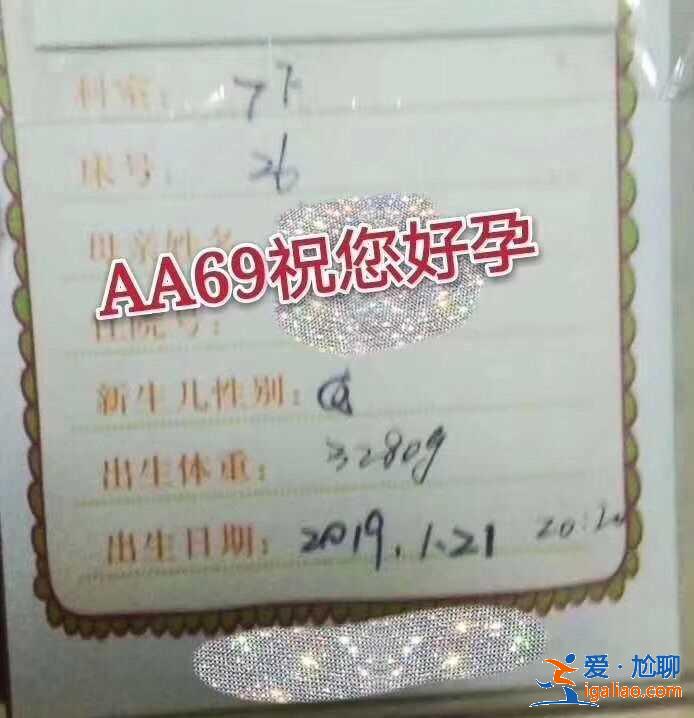 科室: 7下
床号: 26
母亲姓名
AA69祝您好孕
住院号:
新生儿性别:
出生体重: 3280g
出生日期: 2019.1.21 20:20
爱·尬聊
igaliao.com